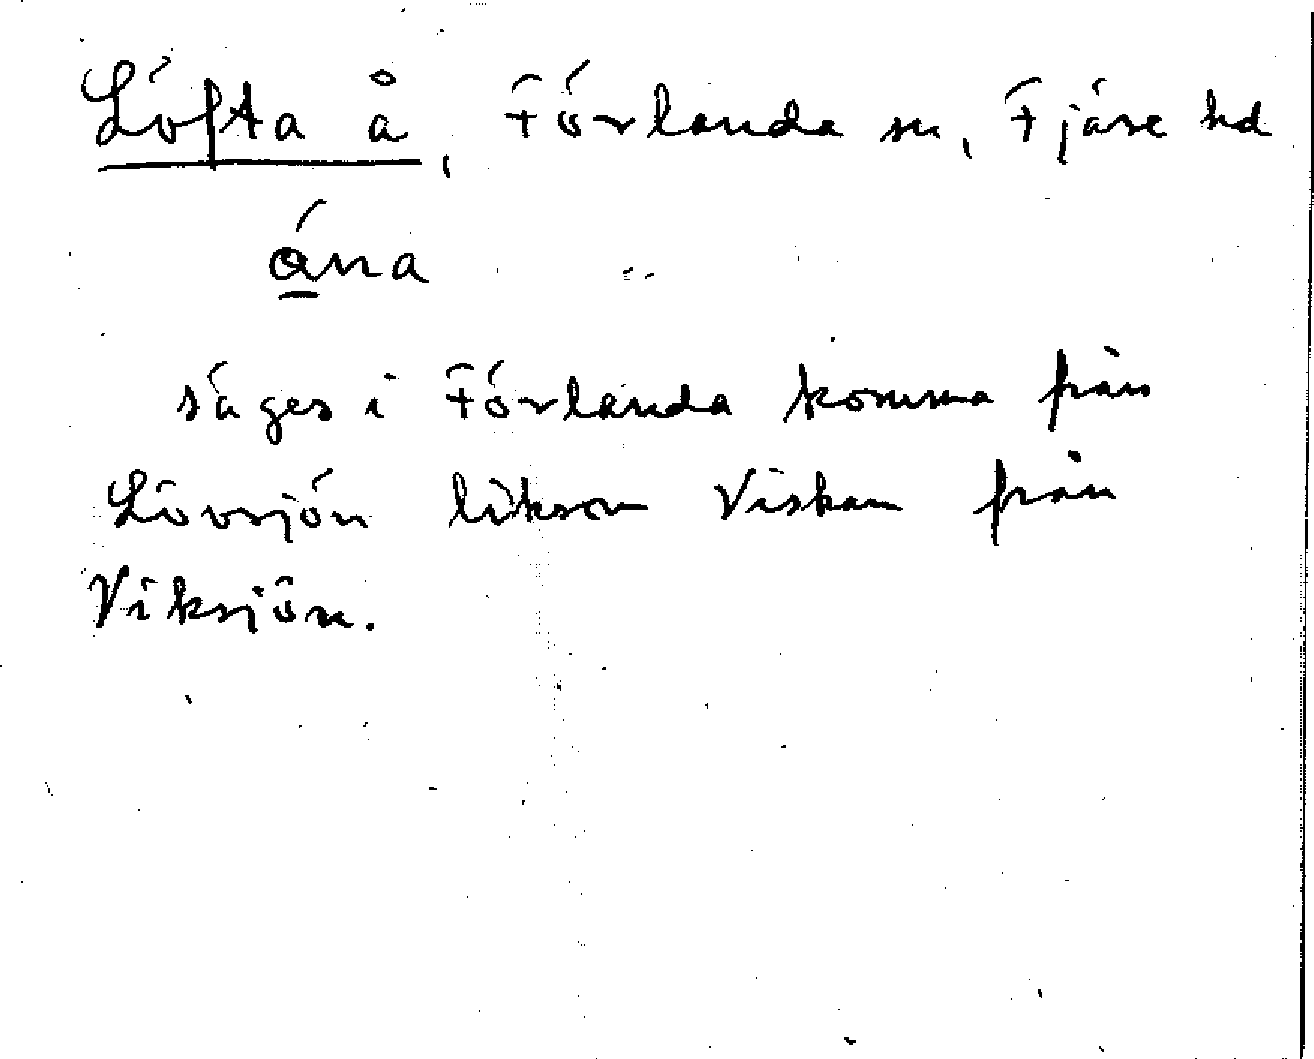 Löfta å, Förlanda sn, Fjäre hd
åna
säges i Förlanda komma från
Lövsjön liksom Viskan från
Viksjön.